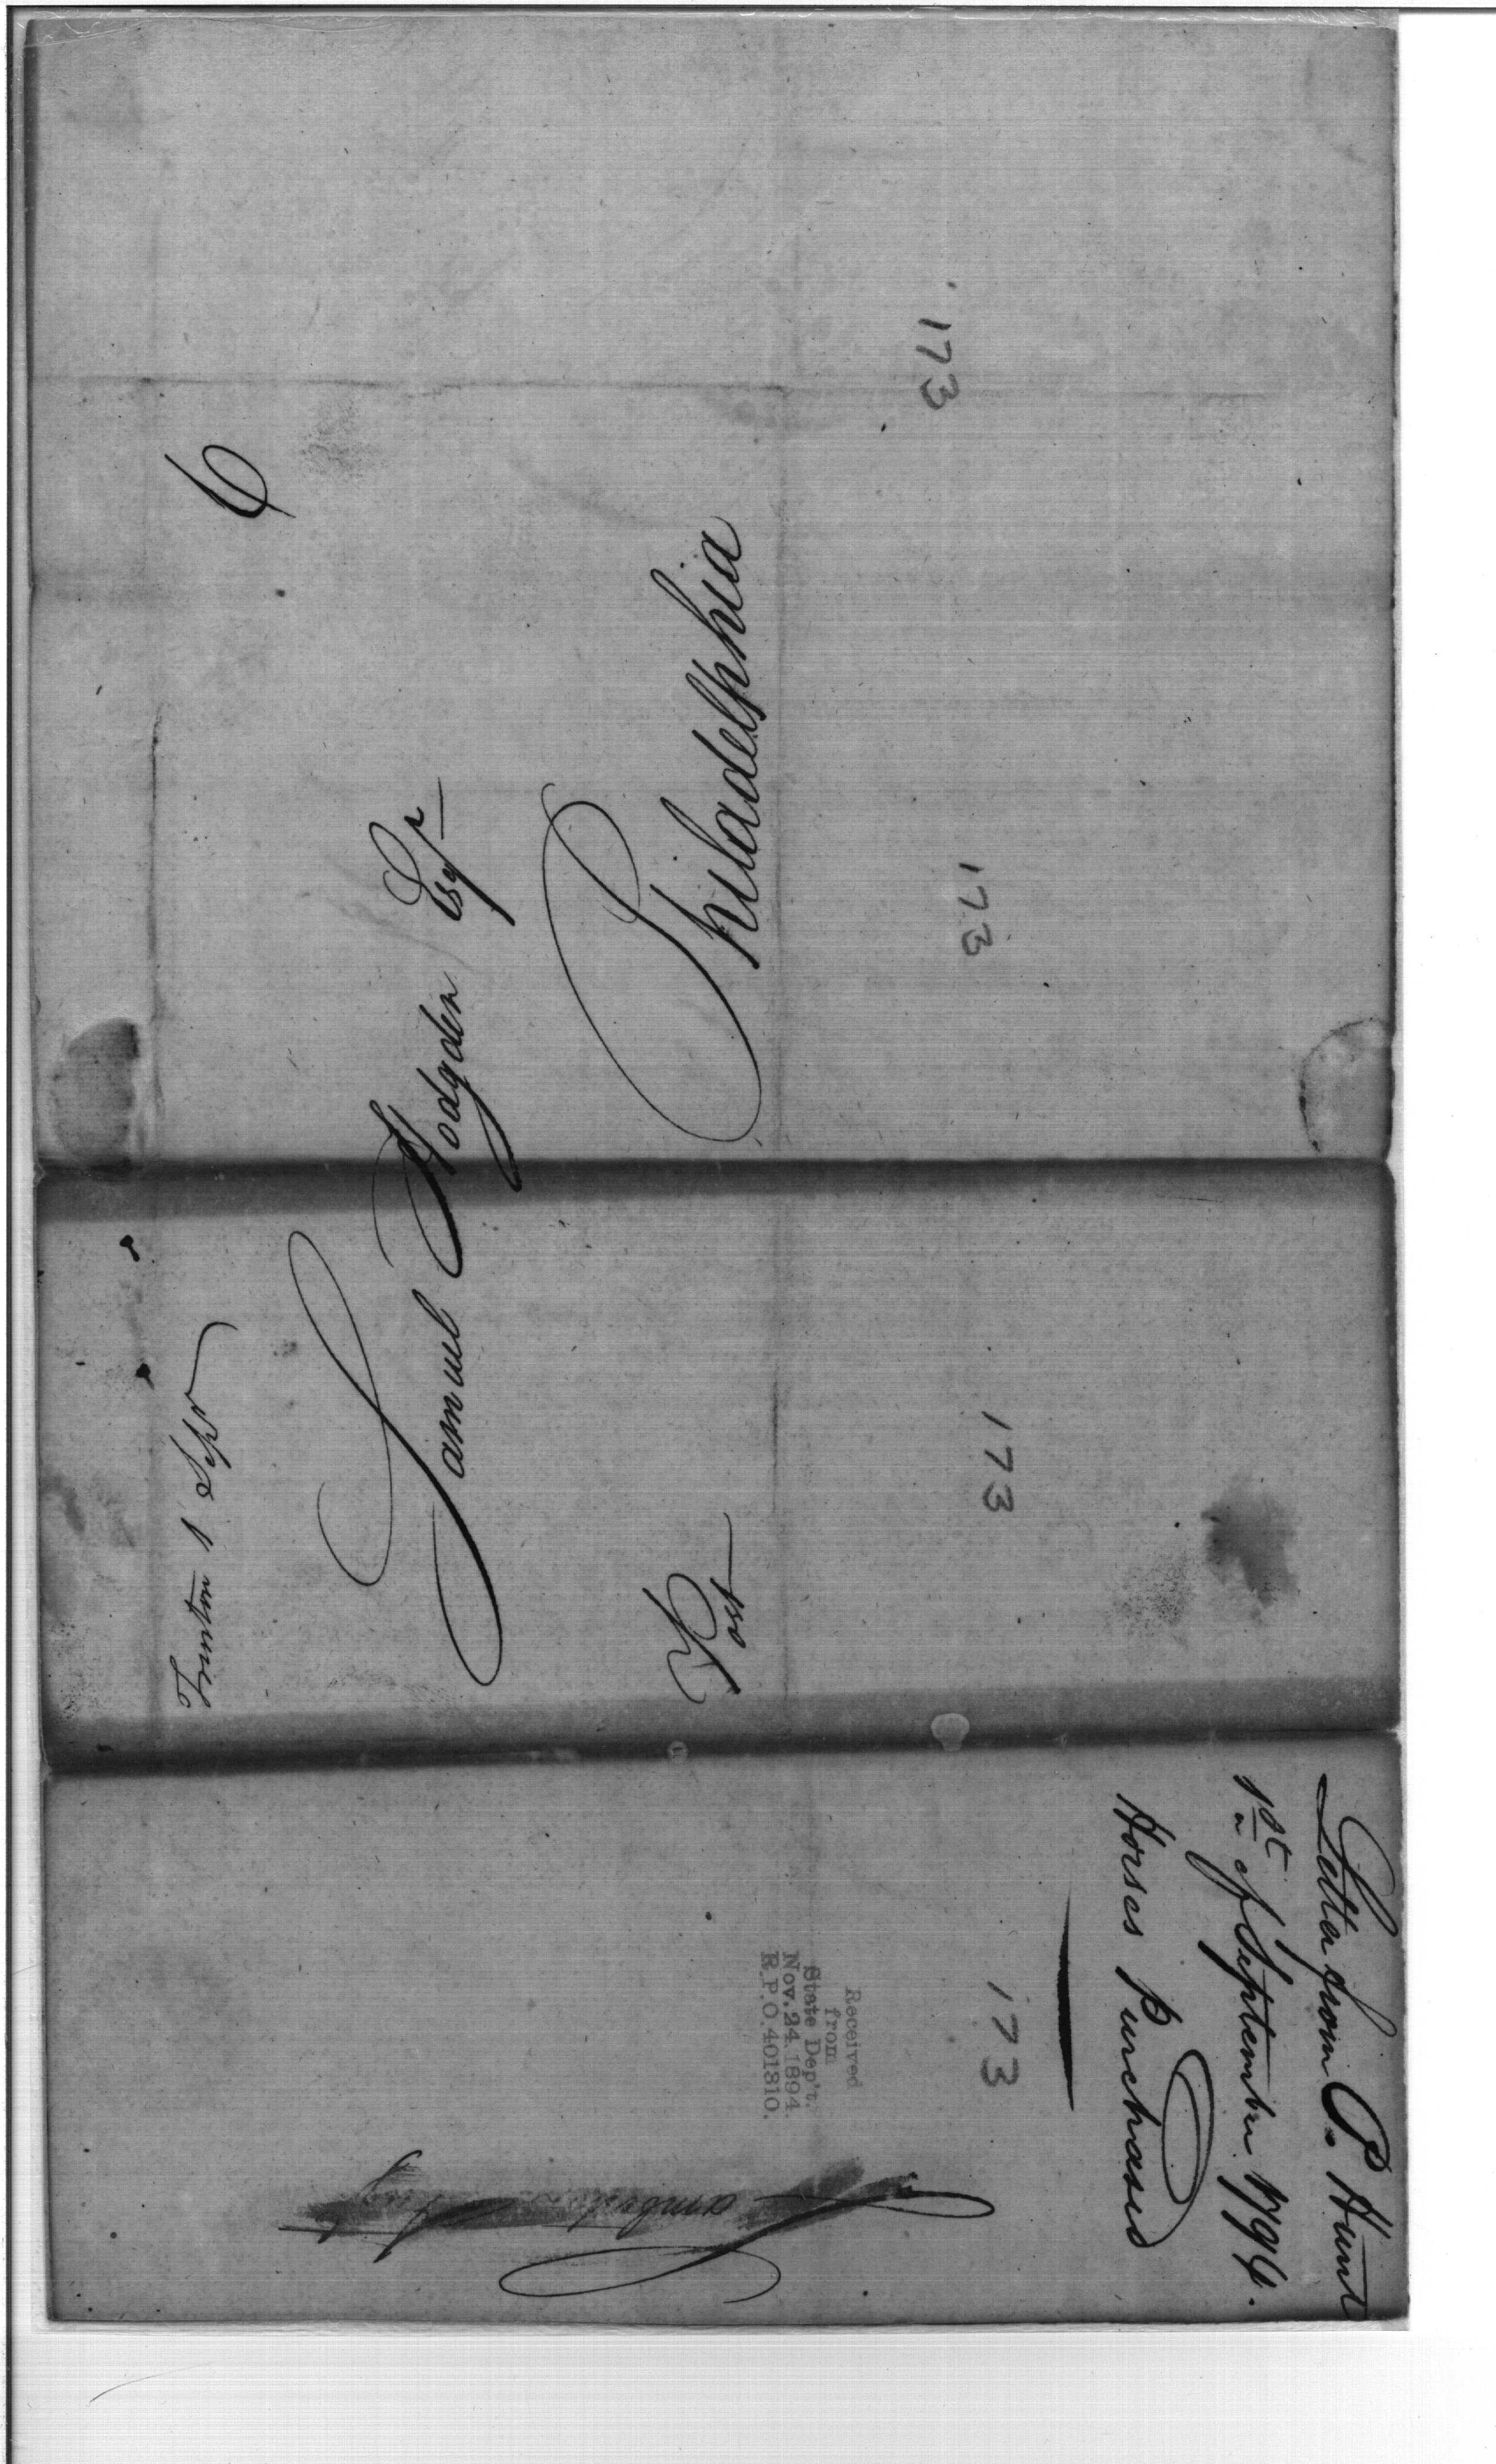 Trenton 1 Sepr
6
Samuel Hodgden Esqr
Philadelphia
Post
Letter from P. Hunt
1st of September 1794.
Horses Purchased
173
173
173
173
Received
from
State Dep't.
Nov. 24 1894
R.P.O. 401310.